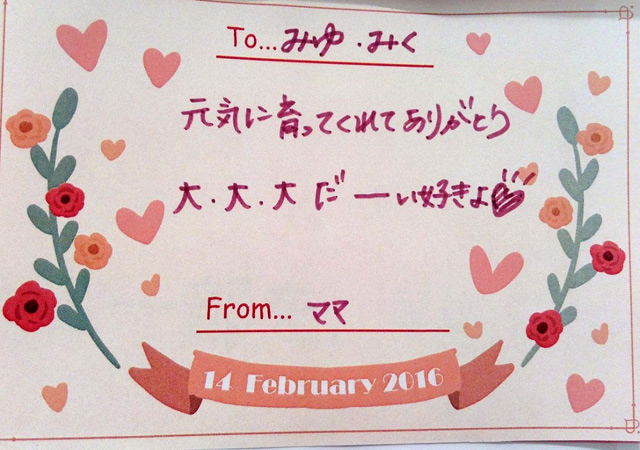 To... みゆ・みく
元気に育ってくれてありがとう
大・大・大だーい好きよ
From... ママ
14 February 2016